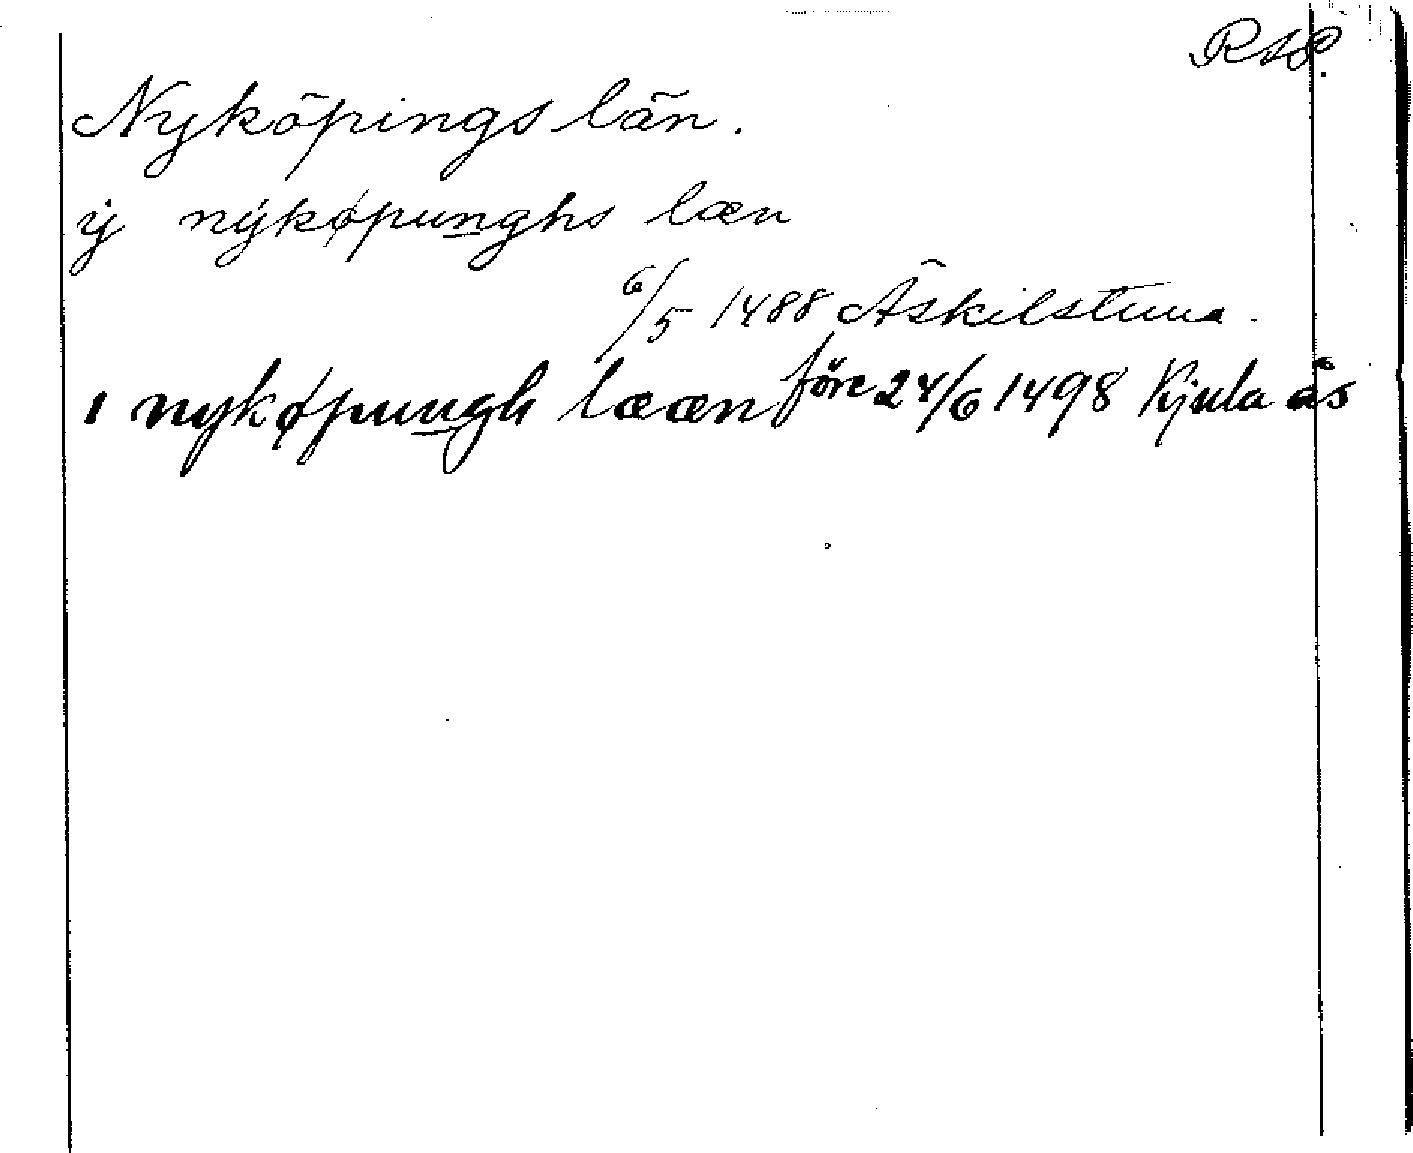 RAP.
Nyköpings län.
ÿ nÿkøpunghs læn
6/5 1488 Äskilstuna.
i nykøpungh lææn före 24/6 1498 Kjula ås